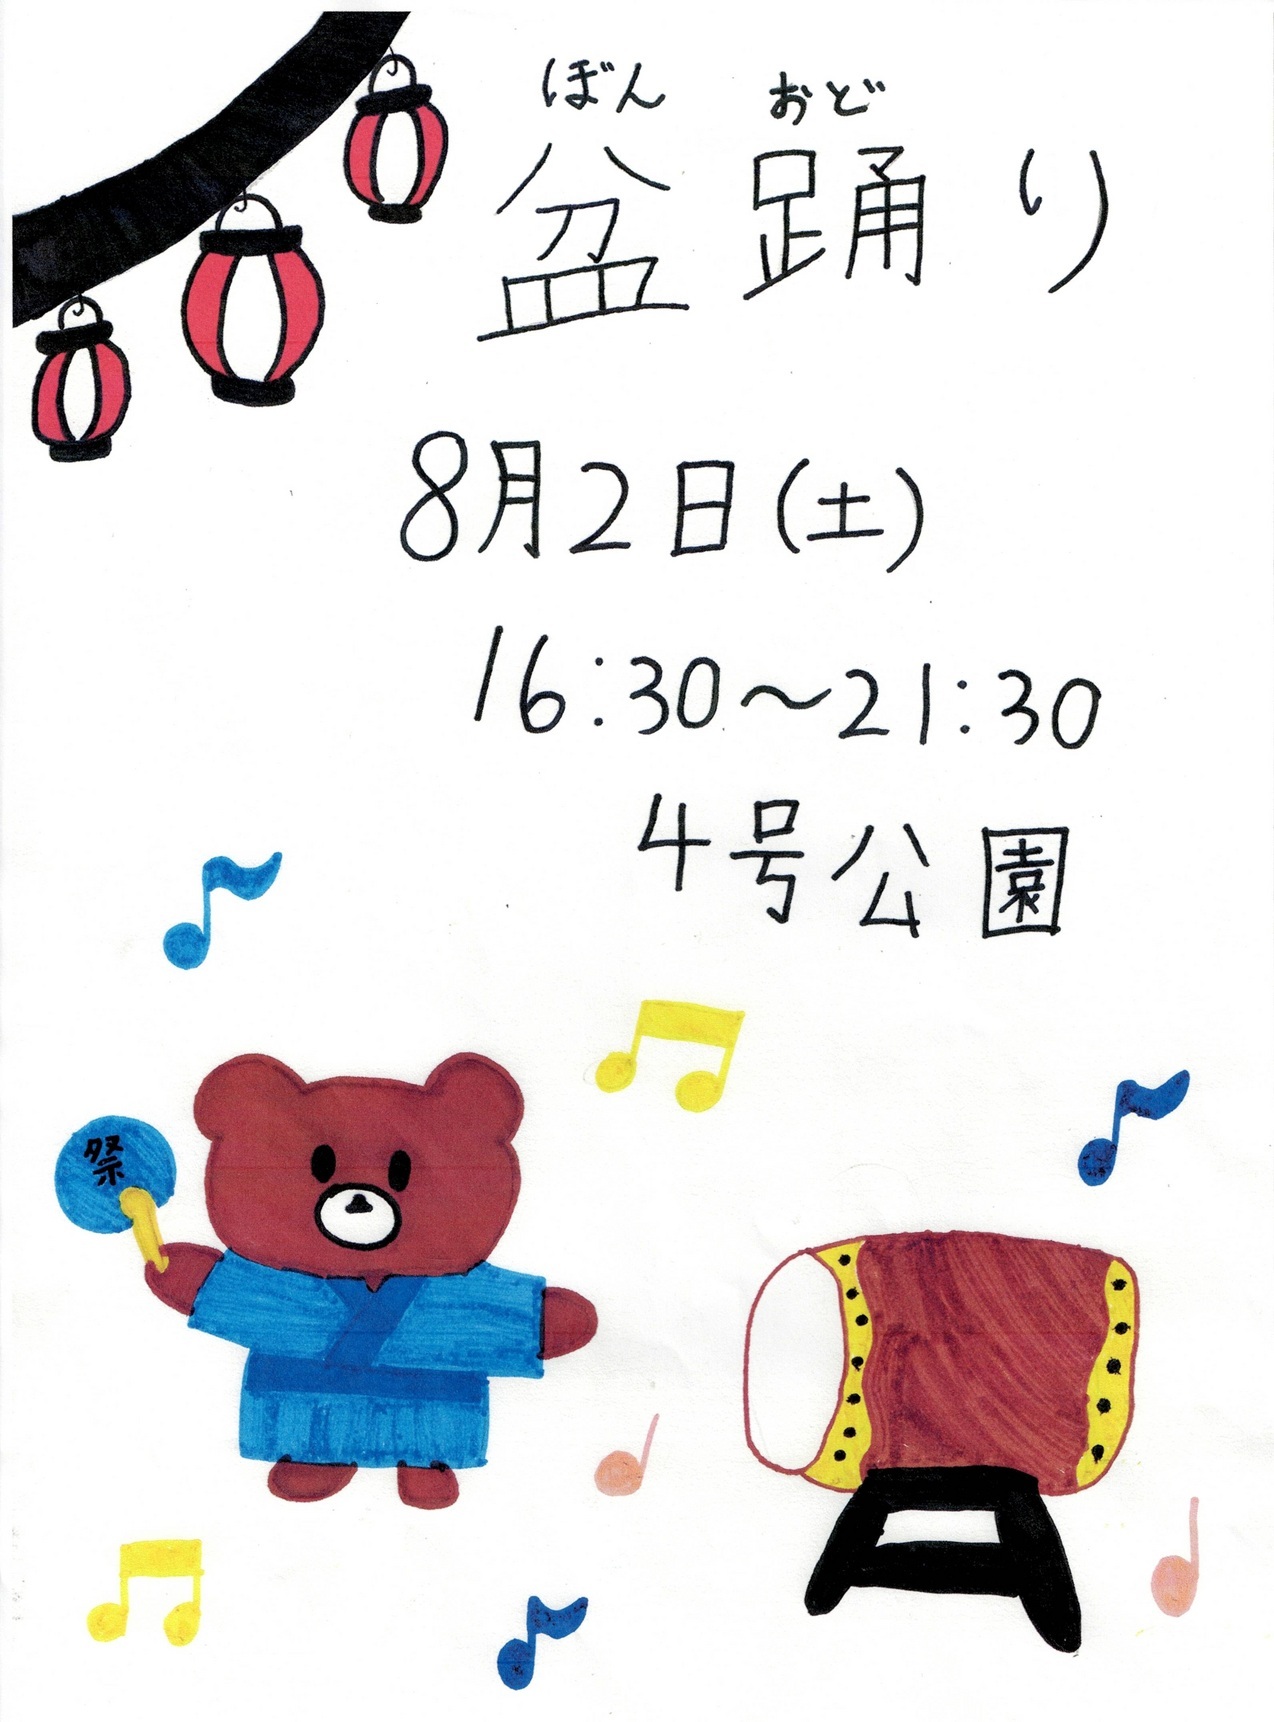 ぼん おど
盆踊り
8月2日(土)
16:30～21:30
4号公園
祭